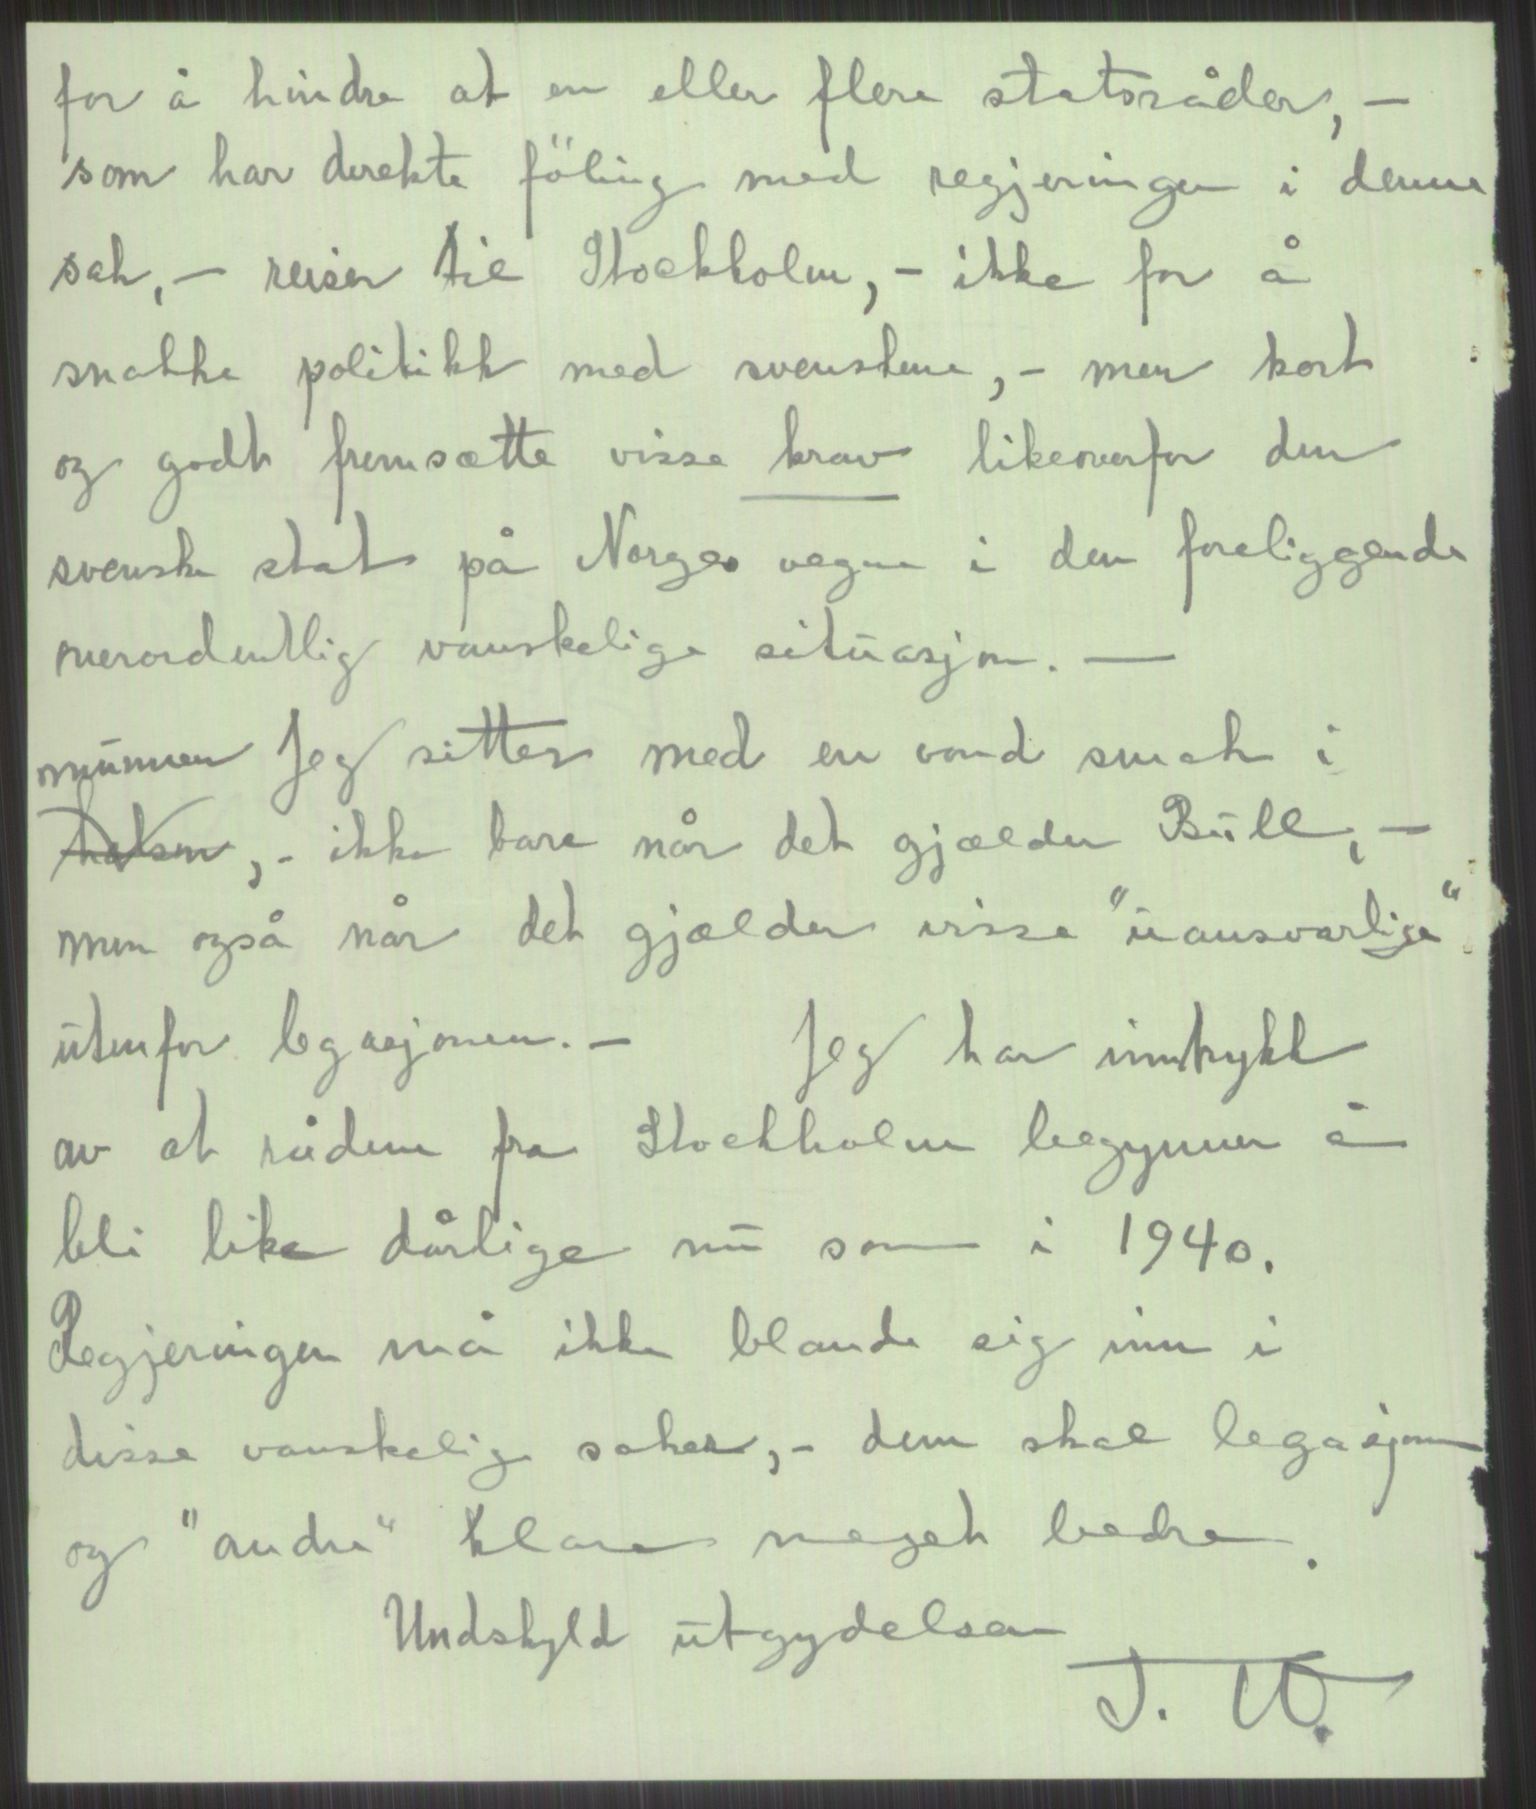 for å hindre at en eller flere statsråder, –
som har direkte föling med regjeringen i denne
sak, – reiser til Stockholm, – ikke for å
snakke politikk med svenskene, – men kort
og godt fremsætte visse krav likeoverfor den
svenske stat på Norges vegne i den foreliggende
overordentlig vanskelige situasjon. —
munnen Jeg sitter med en vond smak i
halsen, – ikke bare når det gjælder Bull, –
men også når det gjælder visse "uansvarlige"
utenfor legasjonen. – Jeg har inntrykk
av at rådene fra Stockholm begynner å
bli like dårlige nu som i 1940.
Regjeringen må ikke blande sig inn i
disse vanskelige saker, – dem skal legasjonen
og "andre" klare meget bedre.
Undskyld utgydelsen
T. W.